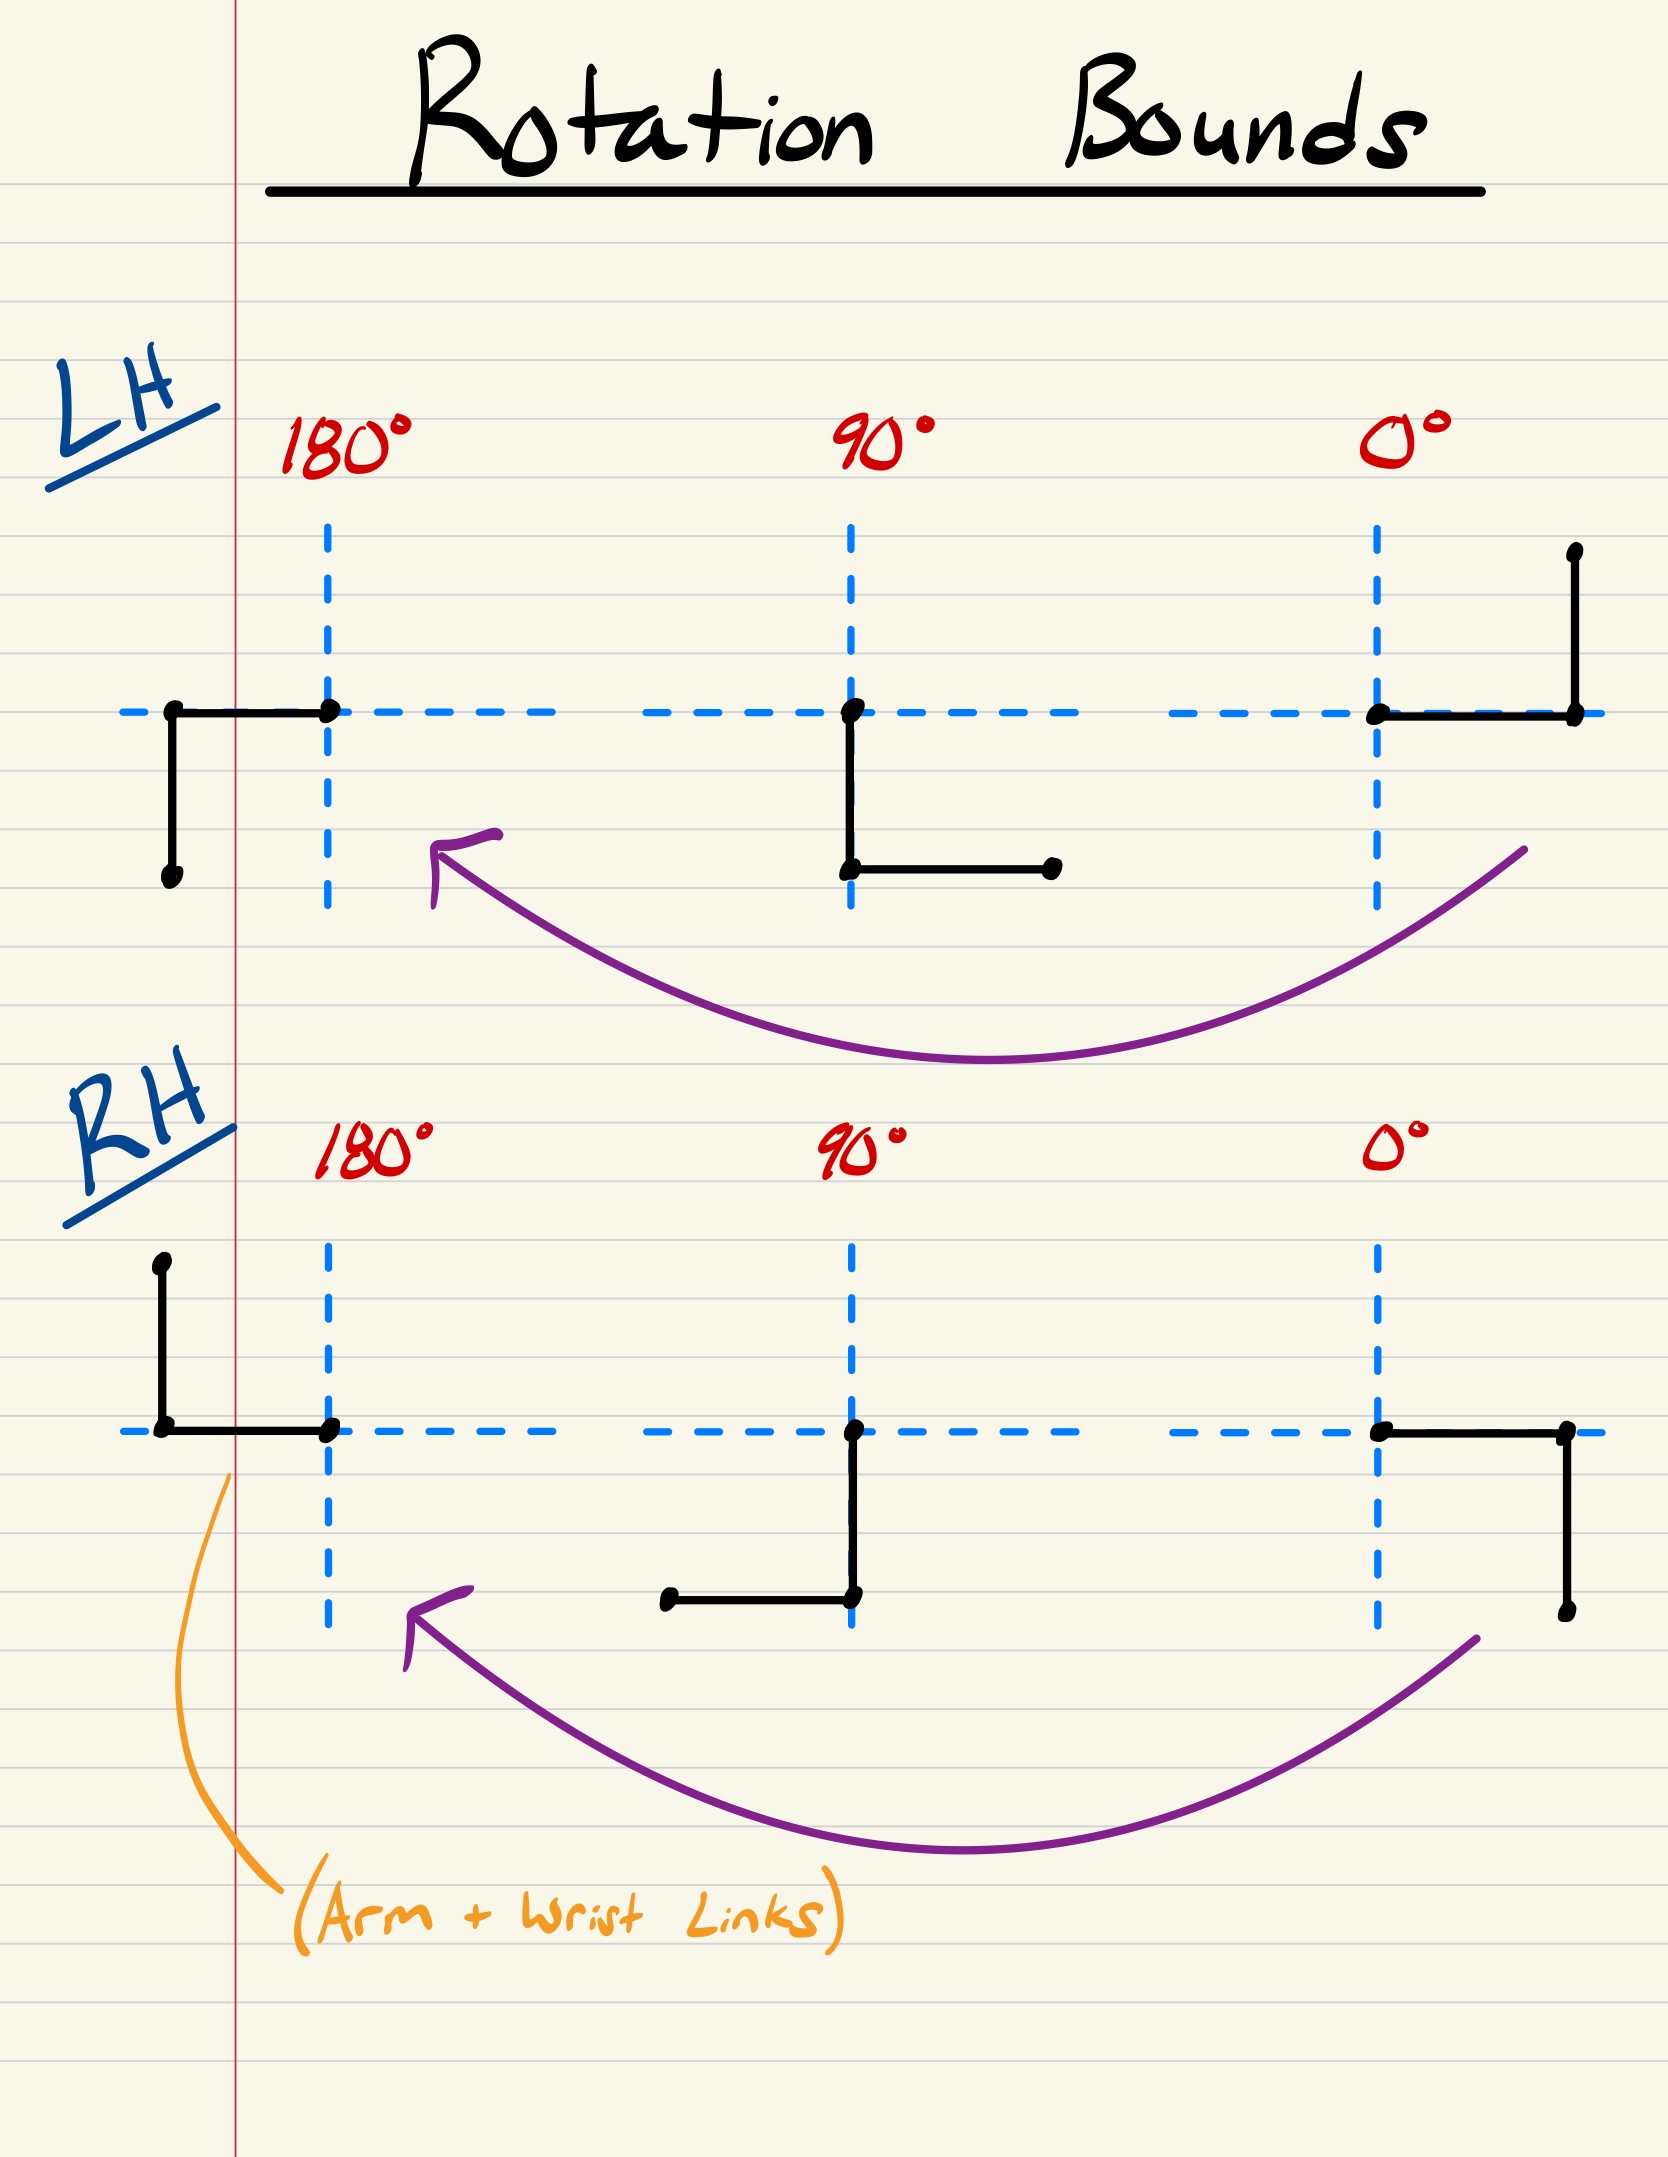 Rotation Bounds
LH
180° 90° 0°
RH
180° 90° 0°
(Arm + Wrist Links)